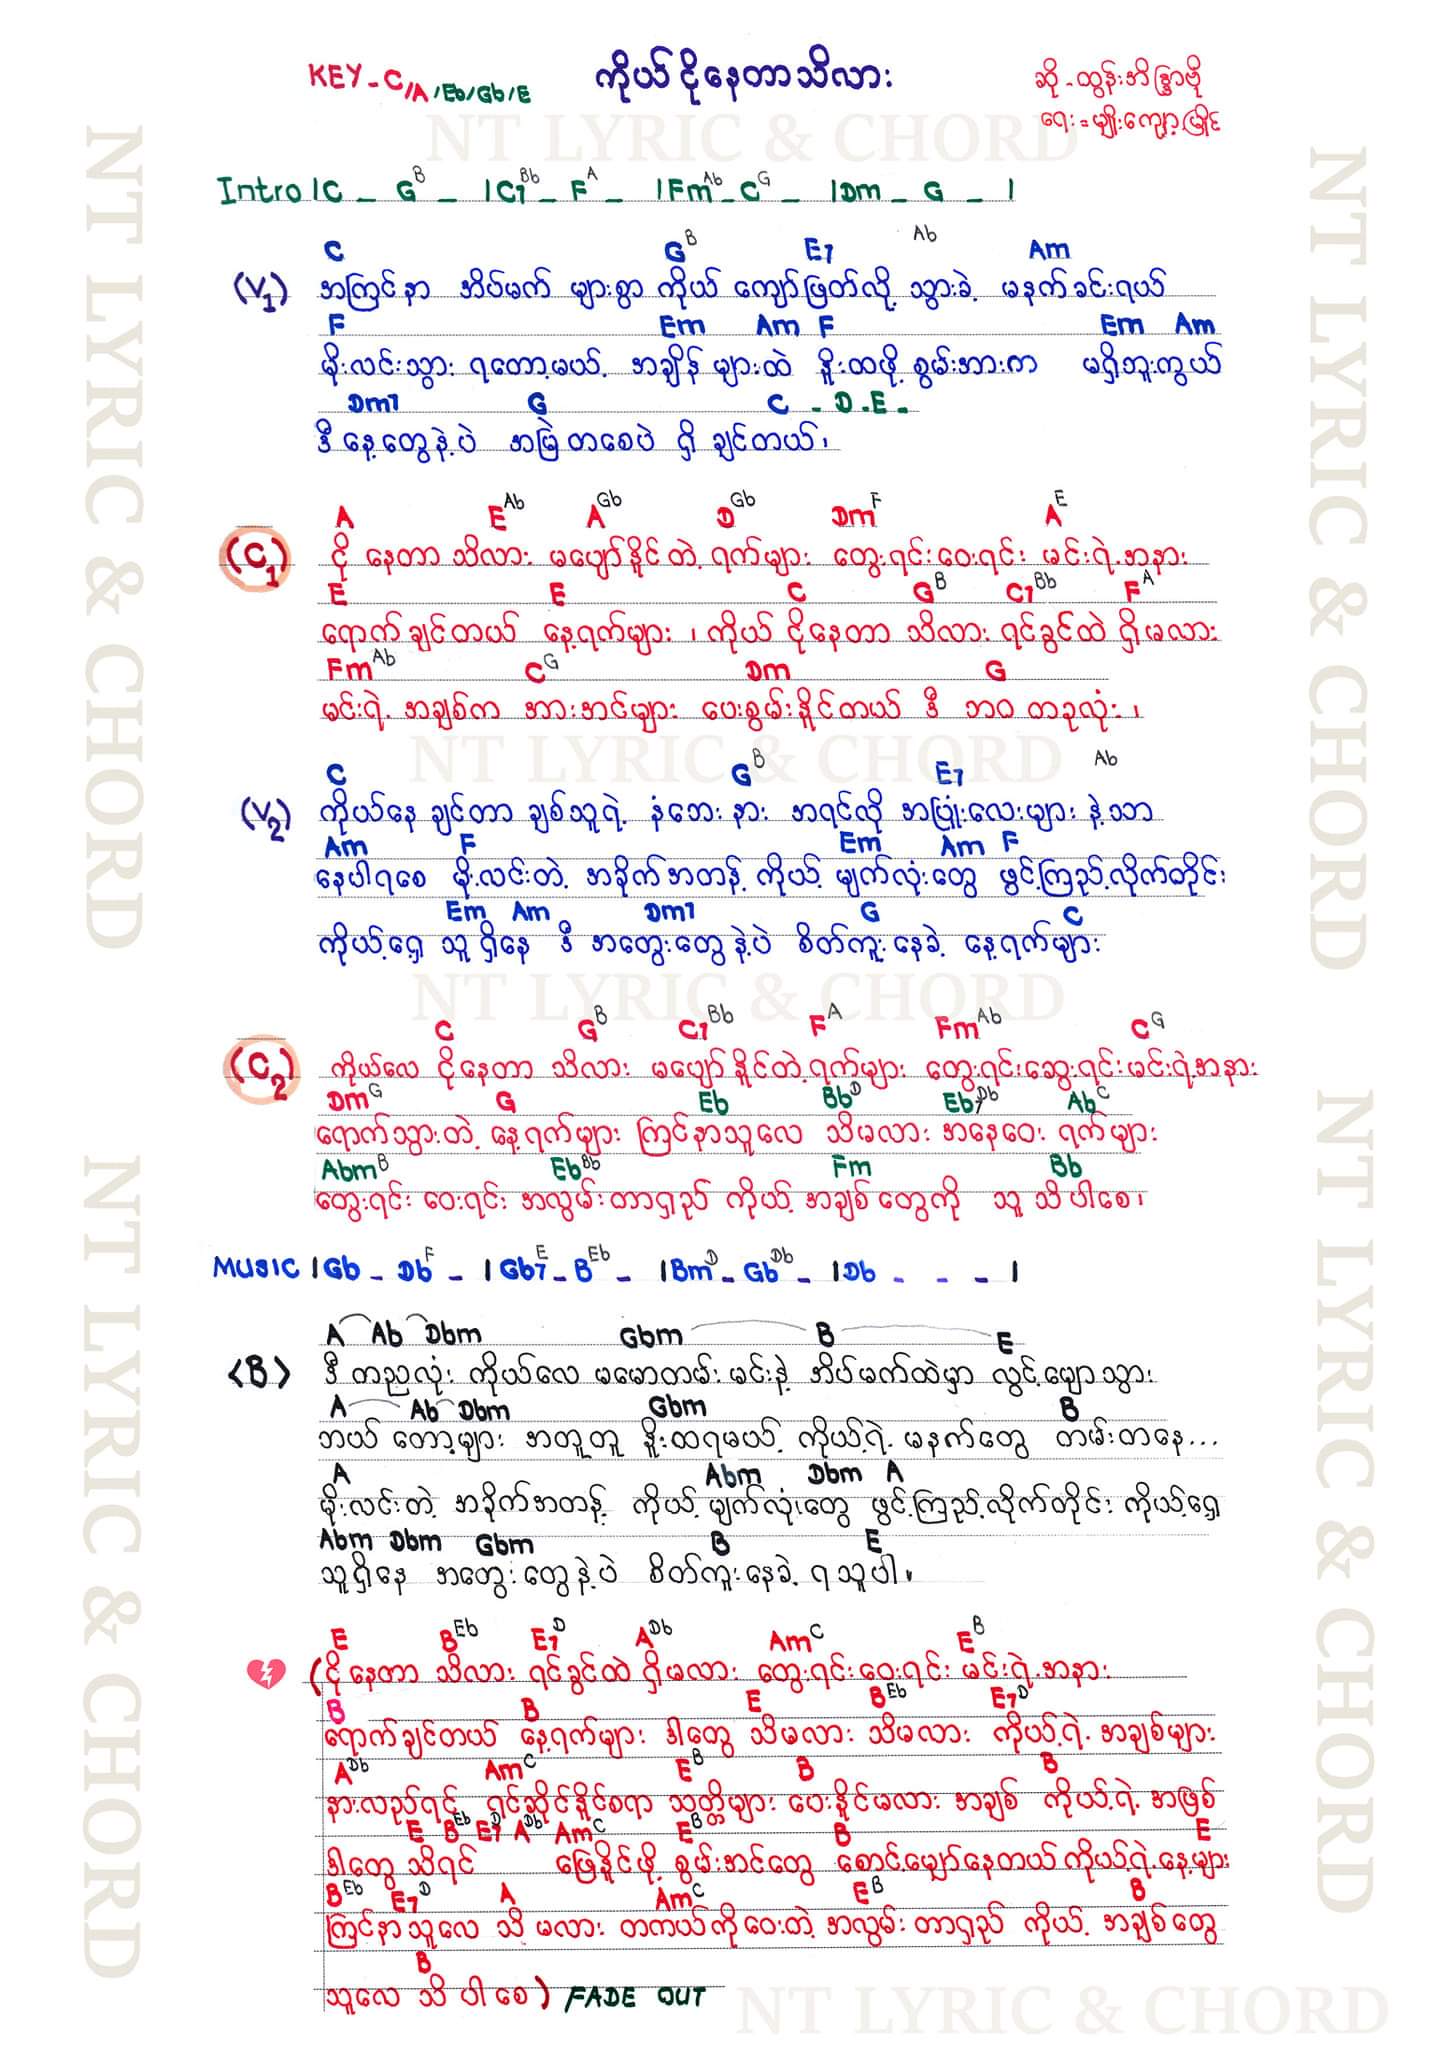 KEY - C/A/Eb/Gb/E
ကိုယ်ငိုနေတာသိလား
ဆို - ထွန်းအိန္ဒြာဗို
ရေး = မျိုးကျော့မြိုင်
NT LYRIC & CHORD
Intro | C _ G B _ | C7 Bb _ F A _ | Fm Ab _ C G _ | Dm _ G _ |
C G B E7 Ab Am
(V1) အကြင်နာ အိပ်မက် များစွာ ကိုယ် ကျော်ဖြတ်လို့ သွားခဲ့ မနက်ခင်းရယ်
F Em Am F Em Am
မိုးလင်းသွား ရတော့မယ့် အချိန်များထဲ နိူးထဖို့ စွမ်းအားက မရှိဘူးကွယ်
Dm7 G C - D - E -
ဒီနေ့တွေနဲ့ပဲ အမြဲတစေပဲ ရှိချင်တယ်၊
A E Ab A Gb D Gb Dm F A E
(C1) ငိုနေတာ သိလား မပျော်နိူင်တဲ့ ရက်များ တွေးရင်းဝေးရင်း မင်းရဲ့အနား
E E C G B C7 Bb F A
ရောက်ချင်တယ် နေ့ရက်များ ၊ ကိုယ် ငိုနေတာ သိလား ရင်ခွင်ထဲ ရှိမလား
Fm Ab C G Dm G
မင်းရဲ့ အချစ်က အားအင်များ ပေးစွမ်းနိူင်တယ် ဒီ ဘဝ တခုလုံး ၊
NT LYRIC & CHORD
C G B E7 Ab
(V2) ကိုယ်နေချင်တာ ချစ်သူရဲ့ နံဘေးနား အရင်လို အပြုံးလေးများ နဲ့သာ
Am F Em Am F
နေပါရစေ မိုးလင်းတဲ့ အခိုက်အတန့် ကိုယ့်မျက်လုံးတွေ ဖွင့်ကြည့်လိုက်တိုင်း
Em Am Dm7 G C
ကိုယ့်ရှေ့ သူရှိနေ ဒီ အတွေးတွေနဲ့ပဲ စိတ်ကူးနေခဲ့ နေ့ရက်များ
NT LYRIC & CHORD
C G B C7 Bb F A Fm Ab C G
(C2) ကိုယ်လေ ငိုနေတာ သိလား မပျော်နိူင်တဲ့ရက်များ တွေးရင်းဆွေးရင်းမင်းရဲ့အနား
Dm G G Eb Bb D Eb7 Db Ab C
ရောက်သွားတဲ့ နေ့ရက်များ ကြင်နာသူလေ သိမလား အနေဝေး ရက်များ
Abm B Eb Bb Fm Bb
တွေးရင်း ဝေးရင်း အလွမ်းတာရှည် ကိုယ့်အချစ်တွေကို သူ သိပါစေ၊
MUSIC | Gb - Db F - | Gb7 E - B Eb - | Bm D - Gb Db - | Db - - - |
A Ab Dbm Gbm B E
<B> ဒီ တညလုံး ကိုယ်လေ မမောတမ်း မင်းနဲ့ အိပ်မက်ထဲမှာ လွင့်မျောသွား
A Ab Dbm Gbm B
ဘယ်တော့များ အတူတူ နိူးထရမယ့် ကိုယ့်ရဲ့ မနက်တွေ တမ်းတနေ...
A Abm Dbm A
မိုးလင်းတဲ့ အခိုက်အတန့် ကိုယ့်မျက်လုံးတွေ ဖွင့်ကြည့်လိုက်တိုင်း ကိုယ့်ရှေ့
Abm Dbm Gbm B E
သူရှိနေ အတွေးတွေနဲ့ပဲ စိတ်ကူးနေခဲ့ ရသူပါ။
E B Eb E7 D A Db Am C E B
(ငိုနေတာ သိလား ရင်ခွင်ထဲ ရှိမလား တွေးရင်းဝေးရင်း မင်းရဲ့အနား
B B E B Eb E7 D
ရောက်ချင်တယ် နေ့ရက်များ ဒါတွေ သိမလား သိမလား ကိုယ့်ရဲ့ အချစ်များ
A Db Am C E B B B
နားလည်ရင့် ရင်ဆိုင်နိူင်စရာ သတ္တိများ ပေးနိူင်မလား အချစ် ကိုယ့်ရဲ့အဖြစ်
E B Eb E7 D A Db Am C E B B E
ဒါတွေ သိရင် ဖြေနိူင်ဖို့ စွမ်းအင်တွေ စောင့်မျှော်နေတယ် ကိုယ့်ရဲ့နေ့များ
B Eb E7 D A Am C E B B
ကြင်နာသူလေ သိ မလား တကယ်ကိုဝေးတဲ့ အလွမ်းတာရှည် ကိုယ့် အချစ်တွေ
B
သူလေ သိပါစေ) FADE OUT
NT LYRIC & CHORD
NT LYRIC & CHORD
NT LYRIC & CHORD
NT LYRIC & CHORD
NT LYRIC & CHORD